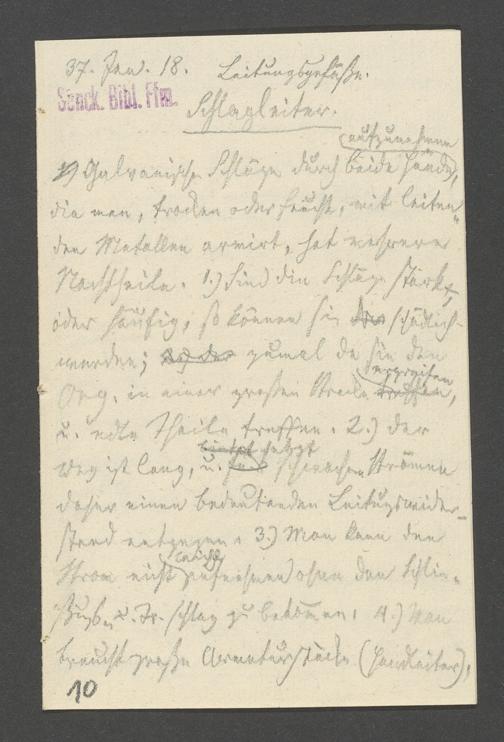 37. Jan. 18. Leitungsgefäße.
Senck. Bibl. Ffm.
Schlagleiter.
aufzunehmen
Galvanische Schläge durch beide Hände,
die man, trocken oder feucht, mit leiten-
den Metallen armirt, hat mehrere
Nachtheile. 1.) Sind die Schläge stark,
oder häufig, so können sie schädlich
werden; zumal da sie den
ergreifen
Org. in einer großen Strecke treffen,
u. edle Theile treffen. 2.) der
setzt
Weg ist lang, u. schwachen Strömen
daher einen bedeutenden Leitungswider-
stand entgegen. 3.) Man kann den
Strom nicht aufnehmen ohne den Schlie-
ßungs- u. Tr. schlag zu bekommen. 4.) Man
braucht große Armaturstücke (Handleiter),
10